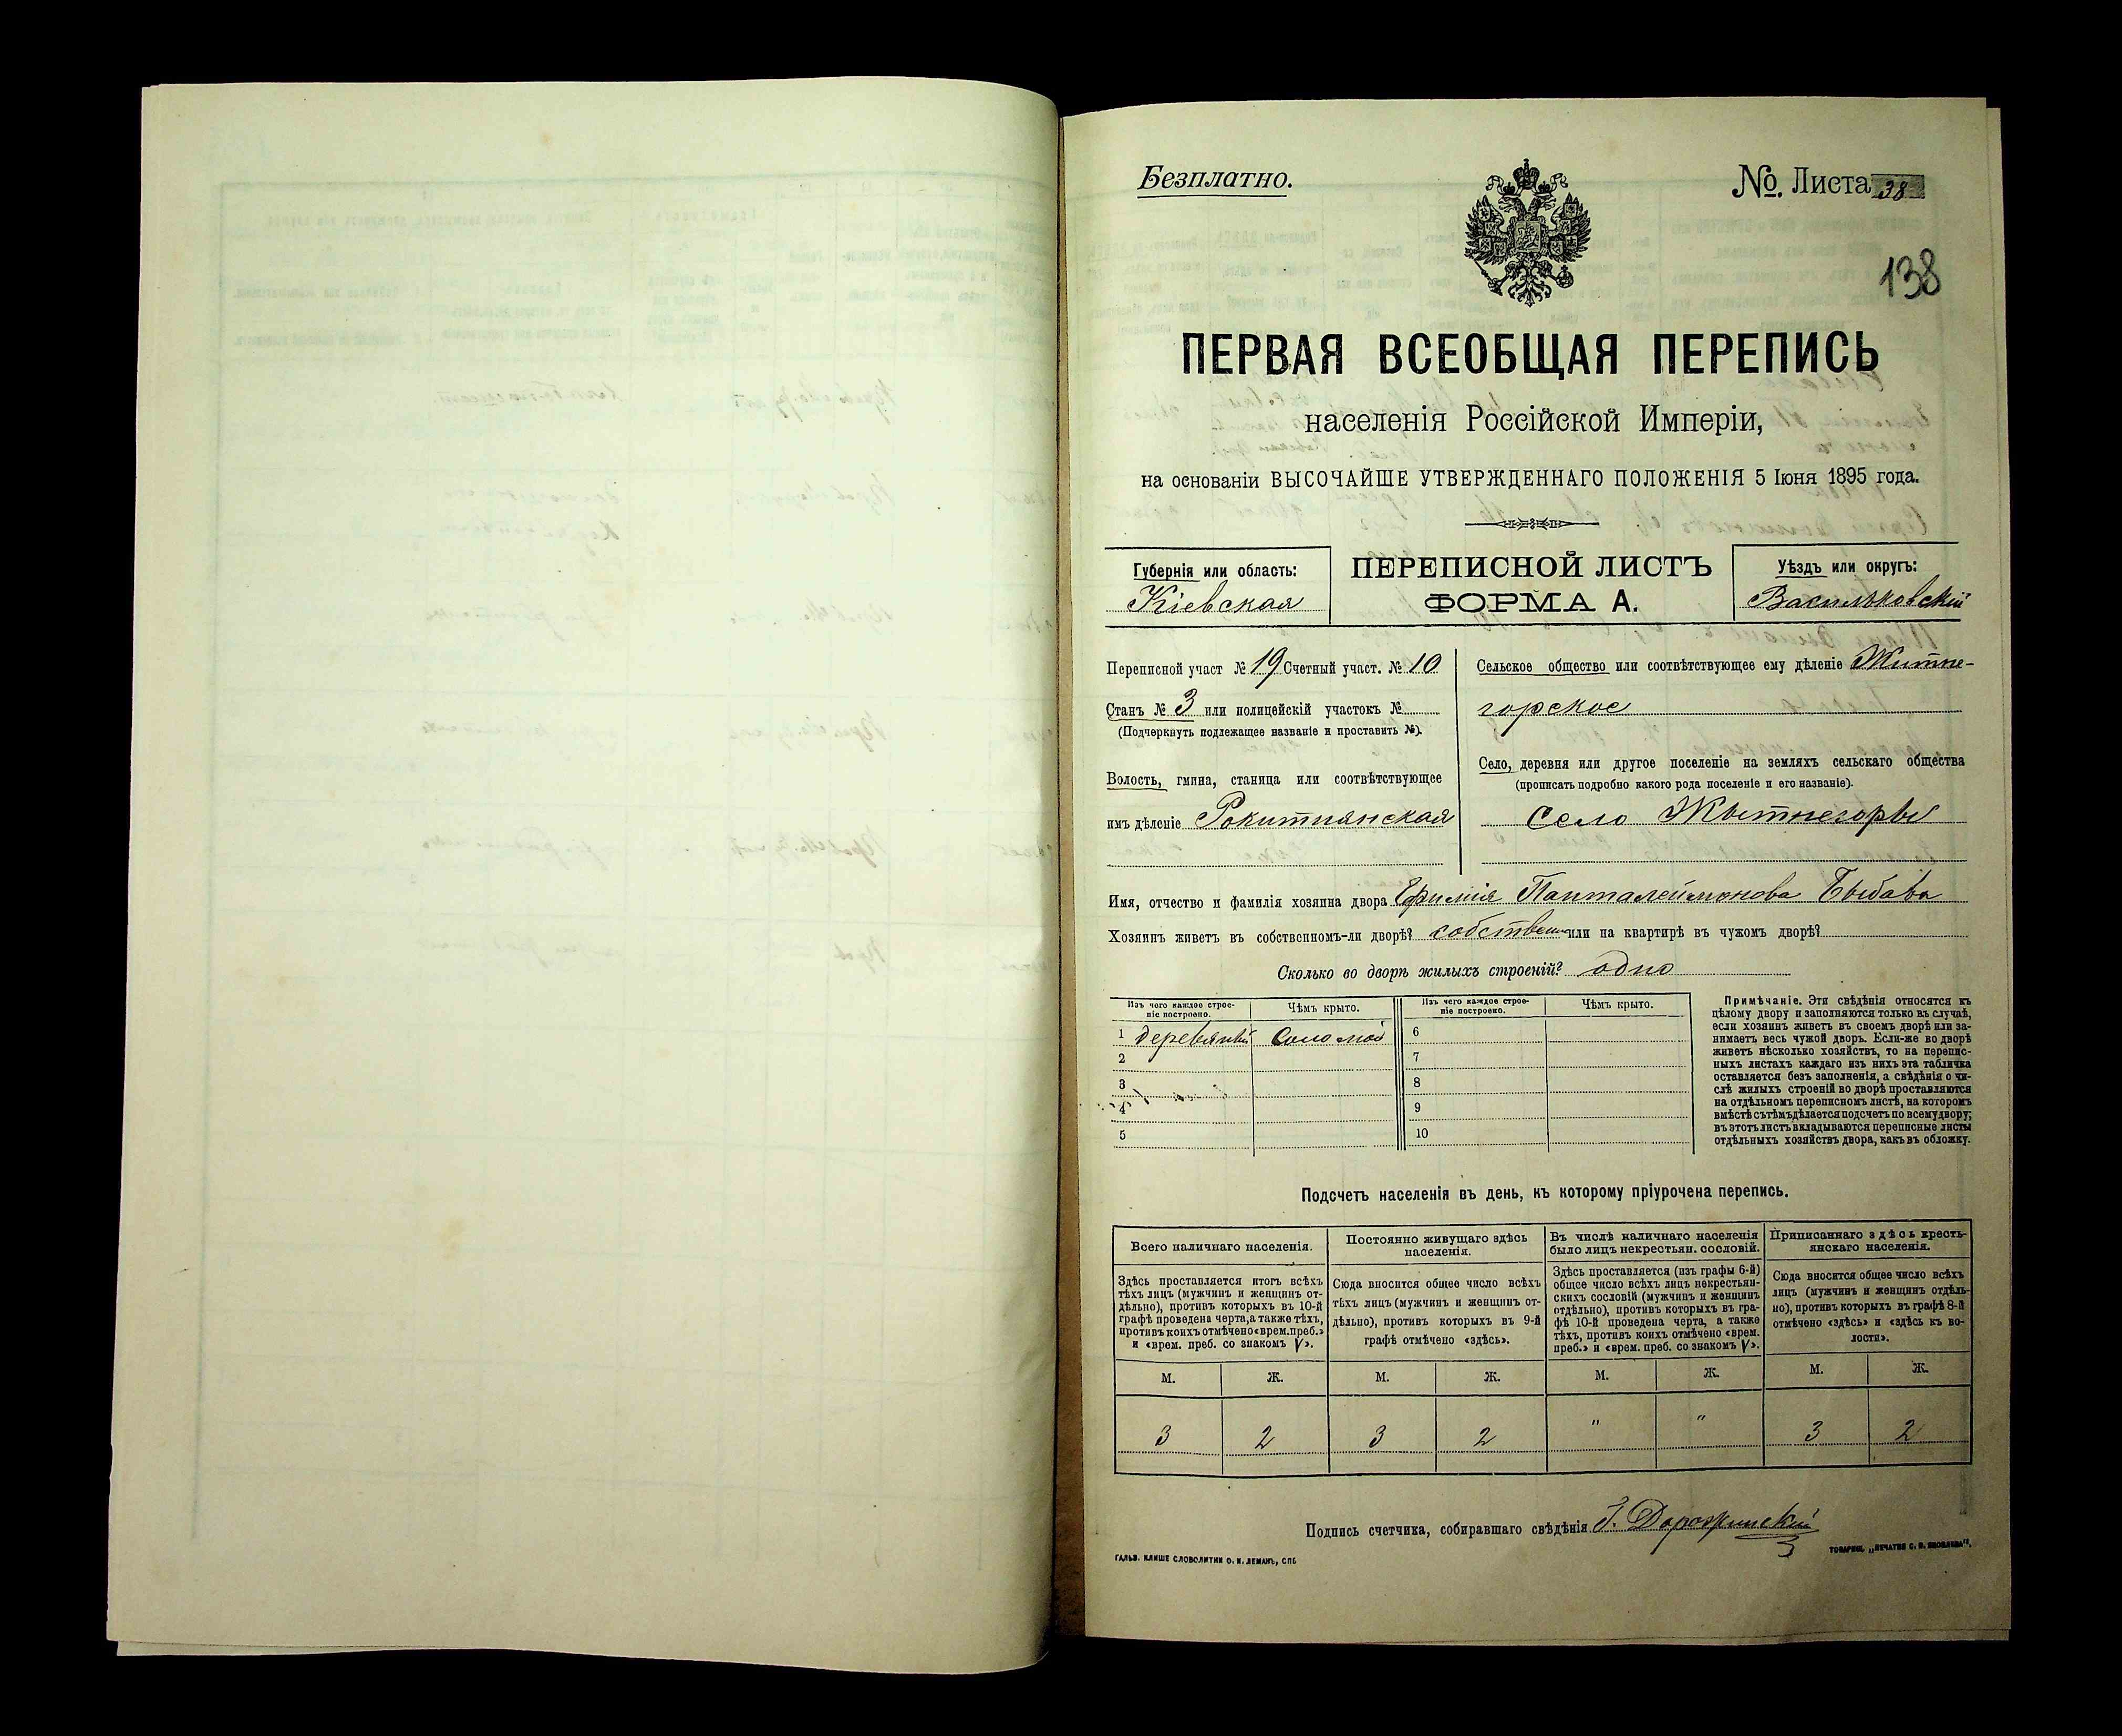 Безплатно.
№ Листа 38
138
ПЕРВАЯ ВСЕОБЩАЯ ПЕРЕПИСЬ
населенія Россійской Имперіи,
на основаніи ВЫСОЧАЙШЕ УТВЕРЖДЕННАГО ПОЛОЖЕНІЯ 5 Іюня 1895 года.
Губернія или область:
Кіевская
ПЕРЕПИСНОЙ ЛИСТЪ
ФОРМА А.
Уѣздъ или округъ:
Васильковскій
Переписной участ № 19 Счетный участ. № 10
Станъ № 3 или полицейскій участокъ №
(Подчеркнуть подлежащее названіе и проставить №).
Волость, гмина, станица или соотвѣтствующее
имъ дѣленіе Рокитнянская
Сельское общество или соотвѣтствующее ему дѣленіе Житне-
горское
Село, деревня или другое поселеніе на земляхъ сельскаго общества
(прописать подробно какого рода поселеніе и его названіе).
Село Жытнегоры
Имя, отчество и фамилія хозяина двора Ефимія Панталеймонова
Хозяинъ живетъ въ собственномъ-ли дворѣ? собствен или на квартирѣ въ чужомъ дворѣ?
Сколько во дворѣ жилыхъ строеній? одно
Изъ чего каждое строе-
ніе построено.
Чѣмъ крыто.
Изъ чего каждое строе-
ніе построено.
Чѣмъ крыто.
1 деревяный Соломой 6
2 7
3 8
4 9
5 10
Примѣчаніе. Эти свѣдѣнія относятся къ
цѣлому двору и заполняются только въ случаѣ,
если хозяинъ живетъ въ своемъ дворѣ или за-
нимаетъ весь чужой дворъ. Если-же во дворѣ
живетъ нѣсколько хозяйствъ, то на перепис-
ныхъ листахъ каждаго изъ нихъ эта табличка
оставляется безъ заполненія, а свѣдѣнія о чи-
слѣ жилыхъ строеній во дворѣ проставляются
на отдѣльномъ переписномъ листѣ, на которомъ
вмѣстѣ съ тѣмъ дѣлается подсчетъ по всему двору;
въ этотъ листъ вкладываются переписные листы
отдѣльныхъ хозяйствъ двора, какъ въ обложку.
Подсчетъ населенія въ день, къ которому пріурочена перепись.
Всего наличнаго населенія.
Здѣсь проставляется итогъ всѣхъ
тѣхъ лицъ (мужчинъ и женщинъ от-
дѣльно), противъ которыхъ въ 10-й
графѣ проведена черта, а также тѣхъ,
противъ коихъ отмѣчено «врем. преб.»
и «врем. преб. со знакомъ V».
Постоянно живущаго здѣсь
населенія.
Сюда вносится общее число всѣхъ
тѣхъ лицъ (мужчинъ и женщинъ от-
дѣльно), противъ которыхъ въ 9-й
графѣ отмѣчено «здѣсь».
Въ числѣ наличнаго населенія
было лицъ некрестьян. сословій.
Здѣсь проставляется (изъ графы 6-й)
общее число всѣхъ лицъ некрестьян-
скихъ сословій (мужчинъ и женщинъ
отдѣльно), противъ которыхъ въ гра-
фѣ 10-й проведена черта, а также
тѣхъ, противъ коихъ отмѣчено «врем.
преб.» и «врем. преб. со знакомъ V».
Приписаннаго здѣсь кресть-
янскаго населенія.
Сюда вносится общее число всѣхъ
лицъ (мужчинъ и женщинъ отдѣль-
но), противъ которыхъ въ графѣ 8-й
отмѣчено «здѣсь» и «здѣсь къ во-
лости».
М. Ж. М. Ж. М. Ж. М. Ж.
3 2 3 2 " " 3 2
Подпись счетчика, собиравшаго свѣдѣнія Г. Дорожинскій
ГАЛЬВ. КЛИШЕ СЛОВОЛИТНИ О. И. ЛЕМАНЪ, СПБ
ТОВАРИЩ. „ПЕЧАТНЯ С. П. ЯКОВЛЕВА".